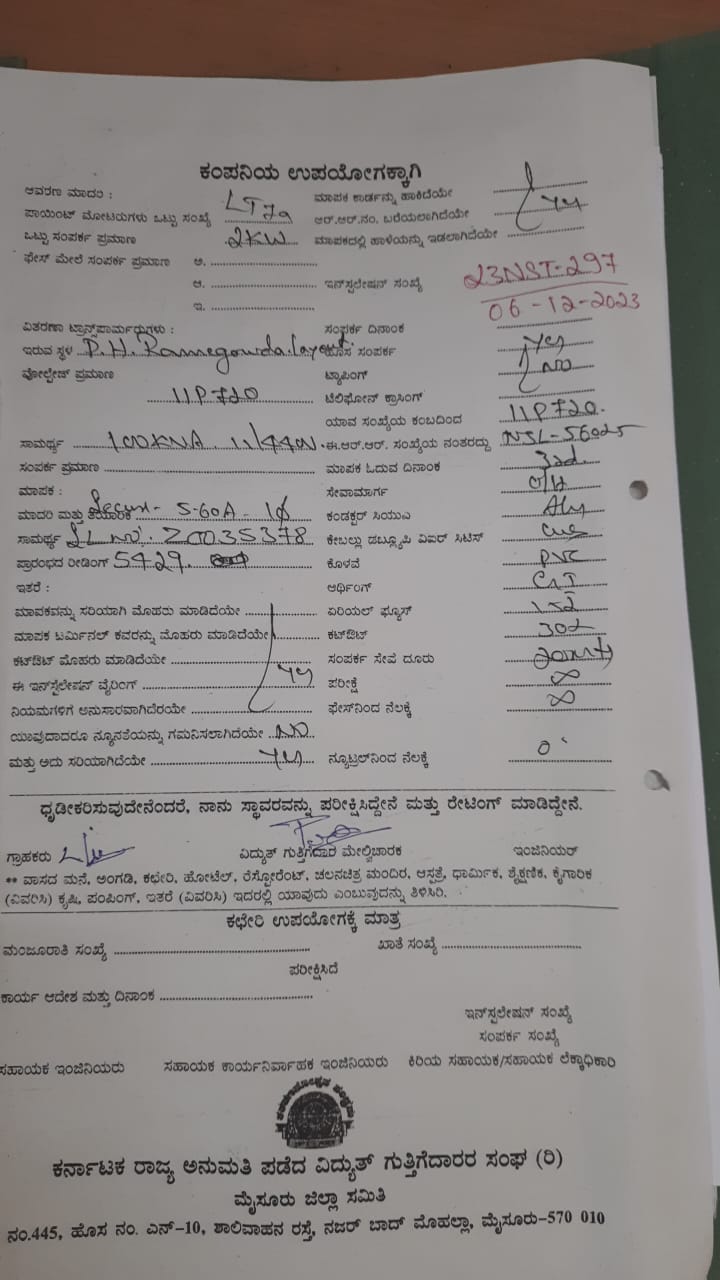 ಕಂಪನಿಯ ಉಪಯೋಗಕ್ಕಾಗಿ
ಆವರಣ ಮಾದರಿ : LT7a ಮಾಪಕ ಕಾರ್ಡನ್ನು ಹಾಕಿದೆಯೇ
ಪಾಯಿಂಟ್ ಮೋಟಾರುಗಳು ಒಟ್ಟು ಸಂಖ್ಯೆ ಆರ್.ಆರ್.ನಂ. ಬರೆಯಲಾಗಿದೆಯೇ
ಒಟ್ಟು ಸಂಪರ್ಕ ಪ್ರಮಾಣ 2KW ಮಾಪಕದಲ್ಲಿ ಹಾಳೆಯನ್ನು ಇಡಲಾಗಿದೆಯೇ
ಫೇಸ್ ಮೇಲೆ ಸಂಪರ್ಕ ಪ್ರಮಾಣ ಅ.
ಆ. ಇನ್‌ಸ್ಟಲೇಷನ್ ಸಂಖ್ಯೆ 23NST-297
ಇ. 06-12-2023
ವಿತರಣಾ ಟ್ರಾನ್ಸ್‌ಪಾರ್ಮರುಗಳು : ಸಂಪರ್ಕ ದಿನಾಂಕ
ಇರುವ ಸ್ಥಳ P.H. Ramegowda layout ಹೊಸ ಸಂಪರ್ಕ Yes
ವೋಲ್ಟೇಜ್ ಪ್ರಮಾಣ ಟ್ಯಾಪಿಂಗ್ NO
11P720 ಟೆಲಿಫೋನ್ ಕ್ರಾಸಿಂಗ್
ಯಾವ ಸಂಖ್ಯೆಯ ಕಂಬದಿಂದ 11P720.
ಸಾಮರ್ಥ್ಯ 100KVA 11/440V ಈ.ಆರ್.ಆರ್. ಸಂಖ್ಯೆಯ ನಂತರದ್ದು NSL-56025
ಸಂಪರ್ಕ ಪ್ರಮಾಣ ಮಾಪಕ ಓದುವ ದಿನಾಂಕ 3rd
ಮಾಪಕ : ಸೇವಾಮಾರ್ಗ O/H
ಮಾದರಿ ಮತ್ತು ತಯಾರಿಕೆ Secure- 5-60A - 1φ ಕಂಡಕ್ಟರ್ ಸಿಯುವಿ
ಸಾಮರ್ಥ್ಯ SL NO: 20035378 ಕೇಬಲ್ಲು ಡಬ್ಲ್ಯೂಪಿ ವಿಐರ್ ಸಿಟಿಸ್
ಪ್ರಾರಂಭದ ರೀಡಿಂಗ್ 5429. ಕೊಳವೆ PVC
ಇತರೆ : ಅರ್ಥಿಂಗ್
ಮಾಪಕವನ್ನು ಸರಿಯಾಗಿ ಮೊಹರು ಮಾಡಿದೆಯೇ ಏರಿಯಲ್ ಫ್ಯೂಸ್
ಮಾಪಕ ಟರ್ಮಿನಲ್ ಕವರನ್ನು ಮೊಹರು ಮಾಡಿದೆಯೇ ಕಟ್‌ಔಟ್
ಕಟ್‌ಔಟ್ ಮೊಹರು ಮಾಡಿದೆಯೇ ಸಂಪರ್ಕ ಸೇವೆ ದೂರು
ಈ ಇನ್‌ಸ್ಟೆಲೇಷನ್ ವೈರಿಂಗ್ ಪರೀಕ್ಷೆ ∞
ನಿಯಮಗಳಿಗೆ ಅನುಸಾರವಾಗಿದೆರಯೇ ಫೇಸ್‌ನಿಂದ ನೆಲಕ್ಕೆ ∞
ಯಾವುದಾದರೂ ನ್ಯೂನತೆಯನ್ನು ಗಮನಿಸಲಾಗಿದೆಯೇ NO
ಮತ್ತು ಅದು ಸರಿಯಾಗಿದೆಯೇ ನ್ಯೂಟ್ರಲ್‌ನಿಂದ ನೆಲಕ್ಕೆ 0
ಧೃಡೀಕರಿಸುವುದೇನೆಂದರೆ, ನಾನು ಸ್ಥಾವರವನ್ನು ಪರೀಕ್ಷಿಸಿದ್ದೇನೆ ಮತ್ತು ರೇಟಿಂಗ್ ಮಾಡಿದ್ದೇನೆ.
ಗ್ರಾಹಕರು ವಿದ್ಯುತ್ ಗುತ್ತಿಗೆದಾರ ಮೇಲ್ವಿಚಾರಕ ಇಂಜಿನಿಯರ್
** ವಾಸದ ಮನೆ, ಅಂಗಡಿ, ಕಛೇರಿ, ಹೋಟೆಲ್, ರೆಸ್ಟೋರೆಂಟ್, ಚಲನಚಿತ್ರ ಮಂದಿರ, ಆಸ್ಪತ್ರೆ, ಧಾರ್ಮಿಕ, ಶೈಕ್ಷಣಿಕ, ಕೈಗಾರಿಕ
(ವಿವರಿಸಿ) ಕೃಷಿ, ಪಂಪಿಂಗ್, ಇತರೆ (ವಿವರಿಸಿ) ಇದರಲ್ಲಿ ಯಾವುದು ಎಂಬುವುದನ್ನು ತಿಳಿಸಿರಿ.
ಕಛೇರಿ ಉಪಯೋಗಕ್ಕೆ ಮಾತ್ರ
ಮಂಜೂರಾತಿ ಸಂಖ್ಯೆ ಖಾತೆ ಸಂಖ್ಯೆ
ಪರೀಕ್ಷಿಸಿದೆ
ಕಾರ್ಯ ಆದೇಶ ಮತ್ತು ದಿನಾಂಕ
ಇನ್‌ಸ್ಟಲೇಷನ್ ಸಂಖ್ಯೆ
ಸಂಪರ್ಕ ಸಂಖ್ಯೆ
ಸಹಾಯಕ ಇಂಜಿನಿಯರು ಸಹಾಯಕ ಕಾರ್ಯನಿರ್ವಾಹಕ ಇಂಜಿನಿಯರು ಕಿರಿಯ ಸಹಾಯಕ/ಸಹಾಯಕ ಲೆಕ್ಕಾಧಿಕಾರಿ
ಕರ್ನಾಟಕ ರಾಜ್ಯ ಅನುಮತಿ ಪಡೆದ ವಿದ್ಯುತ್ ಗುತ್ತಿಗೆದಾರರ ಸಂಘ (ರಿ)
ಮೈಸೂರು ಜಿಲ್ಲಾ ಸಮಿತಿ
ನಂ.445, ಹೊಸ ನಂ. ಎನ್-10, ಶಾಲಿವಾಹನ ರಸ್ತೆ, ನಜರ್ ಬಾದ್ ಮೊಹಲ್ಲಾ, ಮೈಸೂರು-570 010